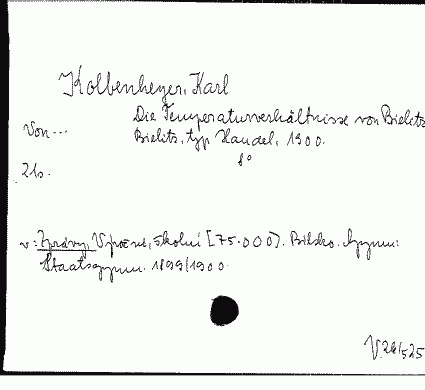 Kolbenheyer, Karl
Die Temperaturverhältnisse von Bielitz
Von ...
Bielitz, typ Handel, 1900.
8°
21s.
v: Zprávy, Výroční, školní [75.000]. Bilsko. Gymn:
Staatsgymn. 1899/1900.
V.24/525